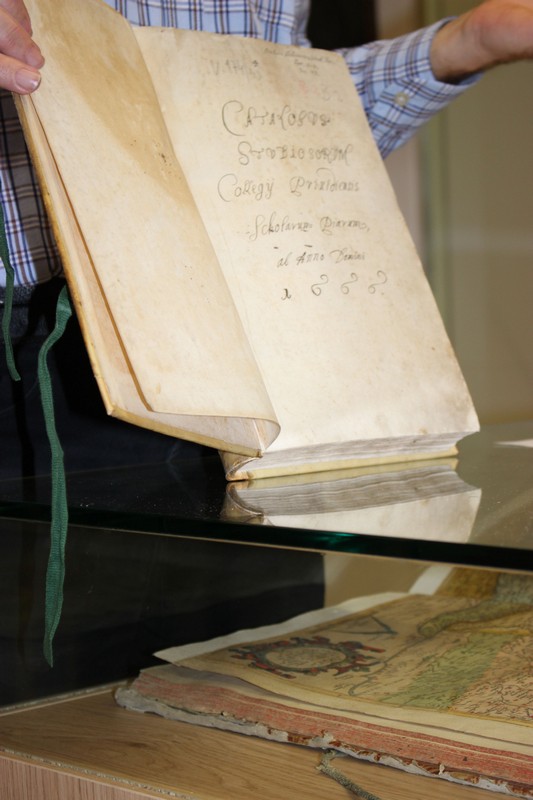 Catalogus
Studiosorum
Collegij Prividiensis
Scholarum Piarum,
ab Anno Domini
1666.